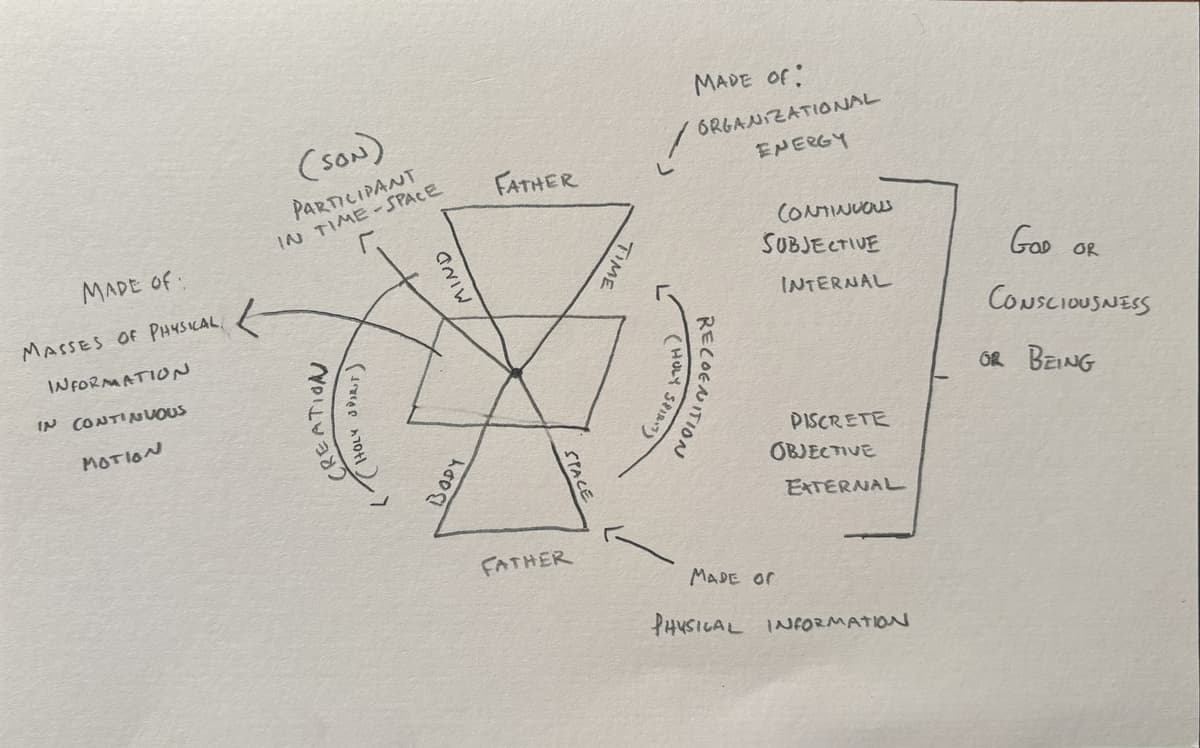 MADE OF:
ORGANIZATIONAL
ENERGY
(SON)
PARTICIPANT
IN TIME-SPACE
FATHER
MIND
TIME
MADE OF:
MASSES OF PHYSICAL
INFORMATION
IN CONTINUOUS
MOTION
CREATION
(HOLY SPIRIT)
RECOGNITION
(HOLY SPIRIT)
CONTINUOUS
SUBJECTIVE
INTERNAL
GOD OR
CONSCIOUSNESS
OR BEING
DISCRETE
OBJECTIVE
EXTERNAL
BODY
SPACE
FATHER
MADE OF
PHYSICAL INFORMATION